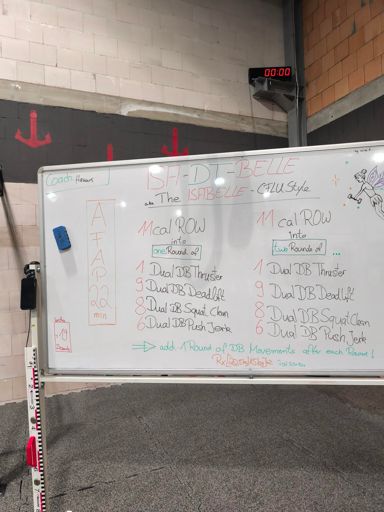 00:00
Coach:
ISA-DT-BELLE
aka The ISABELLE-CFLU Style
AFAP
22
min
11 cal ROW
into
one Round of
1 Dual DB Thruster
9 Dual DB Deadlift
8 Dual DB Squat Clean
6 Dual DB Push Jerk
11 cal ROW
into
two Rounds of ...
1 Dual DB Thruster
9 Dual DB Deadlift
8 Dual DB Squat Clean
6 Dual DB Push Jerk
add 1 Round of DB Movements after each Round!